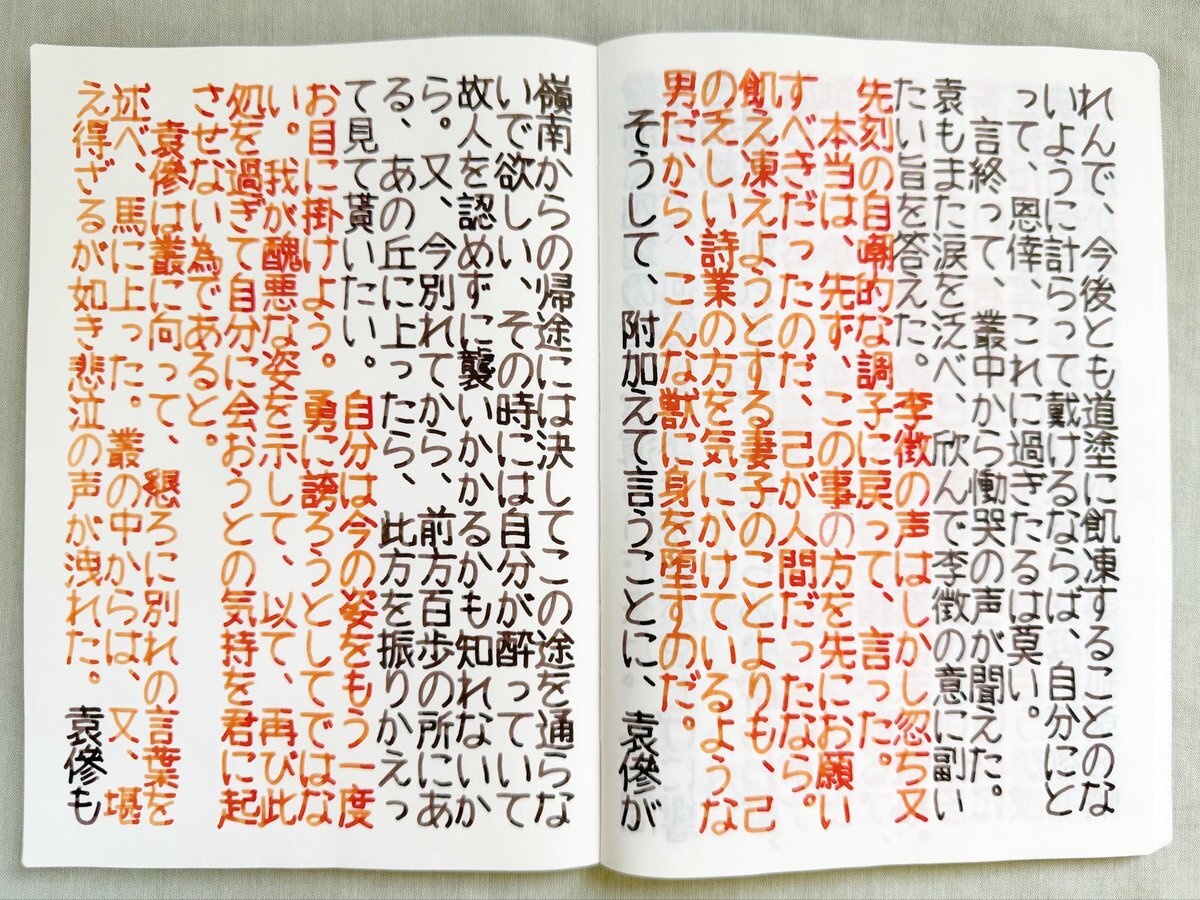 れんで、今後とも道塗に飢凍することのな
いように計らって戴けるならば、自分にと
って、恩倖、これに過ぎたるは莫い。
言終って、叢中から慟哭の声が聞えた。
袁もまた涙を泛べ、欣んで李徴の意に副い
たい旨を答えた。李徴の声はしかし忽ち又
先刻の自嘲的な調子に戻って、言った。
本当は、先ず、この事の方を先にお願い
すべきだったのだ、己が人間だったなら。
飢え凍えようとする妻子のことよりも、己
の乏しい詩業の方を気にかけているような
男だから、こんな獣に身を堕すのだ。
そうして、附加えて言うことに、袁傪が
嶺南からの帰途には決してこの途を通らな
いで欲しい、その時には自分が酔っていて
故人を認めずに襲いかかるかも知れないか
ら。又、今別れてから、前方百歩の所にあ
る、あの丘に上ったら、此方を振りかえっ
て見て貰いたい。自分は今の姿をもう一度
お目に掛けよう。勇に誇ろうとしてではな
い。我が醜悪な姿を示して、以て、再び此
処を過ぎて自分に会おうとの気持を君に起
させない為であると。
袁傪は叢に向って、懇ろに別れの言葉を
述べ、馬に上った。叢の中からは、又、堪
え得ざるが如き悲泣の声が洩れた。袁傪も